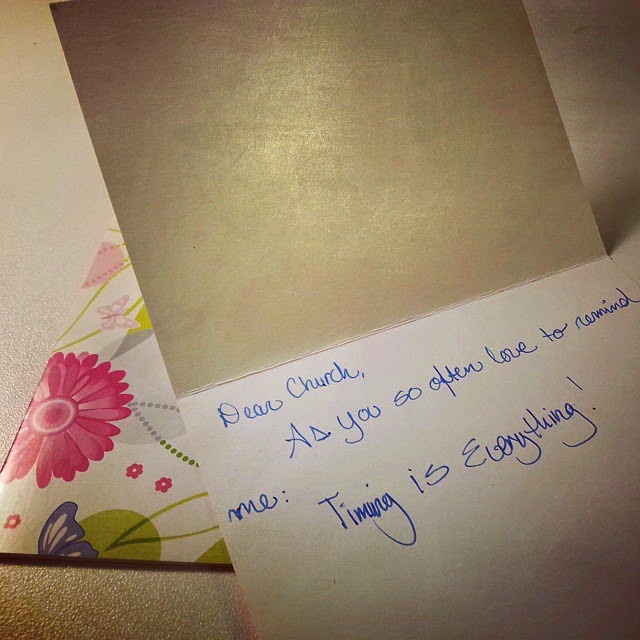 Dear Church,
As you so often love to remind
me: Timing is Everything!